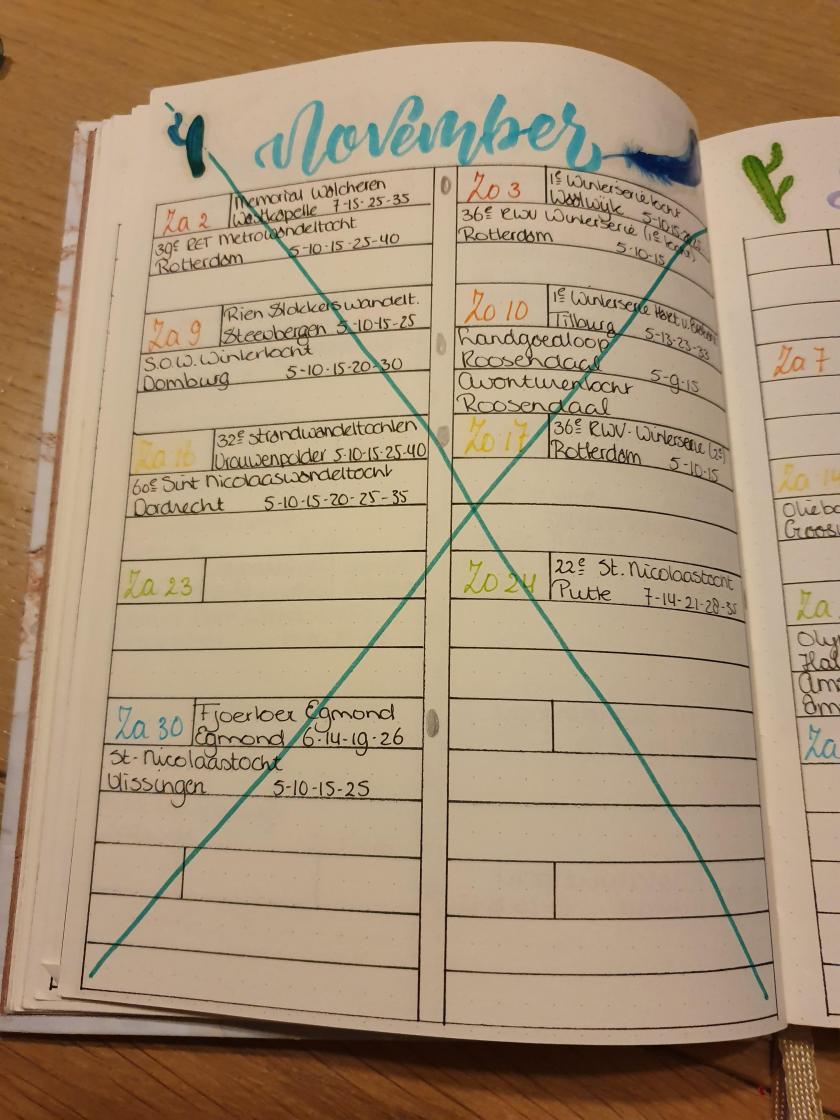 November
Za 2
Memorial Walcheren
Westkapelle 7-15-25-35
39e RET Metrowandeltocht
Rotterdam 5-10-15-25-40
Za 9
Rien Slokkers wandelt.
Steenbergen 5-10-15-25
S.O.W. Wintertocht
Domburg 5-10-15-20-30
Za 16
32e strandwandeltochten
Vrouwenpolder 5-10-15-25-40
60e Sint Nicolaaswandeltocht
Dordrecht 5-10-15-20-25-35
Za 23
Za 30
Fjoerloer Egmond
Egmond 6-14-19-26
St-Nicolaastocht
Vlissingen 5-10-15-25
Zo 3
1e Winterserietocht
Waalwijk 5-10-15
36e RWV Winterserie (1e
Rotterdam 5-10-15
Zo 10
1e Winterserie
Tilburg 5-13-23-33
Landgoedloop
Roosendaal 5-9-15
Avonturentocht
Roosendaal
Zo 17
36e RWV-Winterserie (2e)
Rotterdam 5-10-15
Zo 24
22e St. Nicolaastocht
Putte 7-14-21-28-35
Za 7
Za 14
Olieb
Groos
Za
Oly
Hal
Am
Za